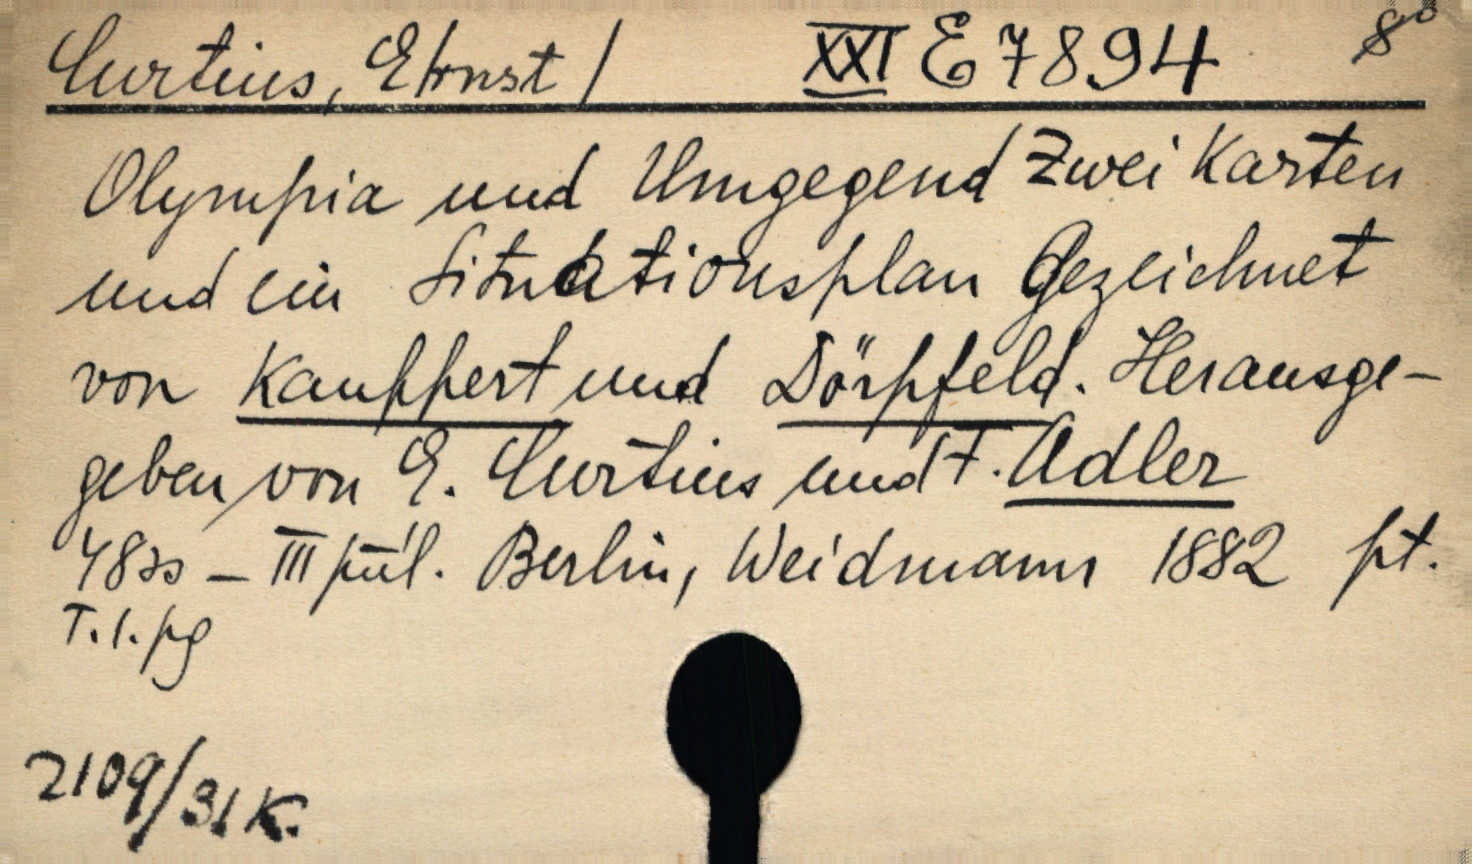 Curtius, E/rnst/ XXI E 7894 8°
Olympia und Umgegend Zwei Karten
und ein Situationsplan Gezeichnet
von Kauppert und Dörpfeld. Herausge-
geben von E. Curtius und F. Adler
48ss – III příl. Berlin, Weidmann 1882 pt.
T. 1. pg
2109/31 K.